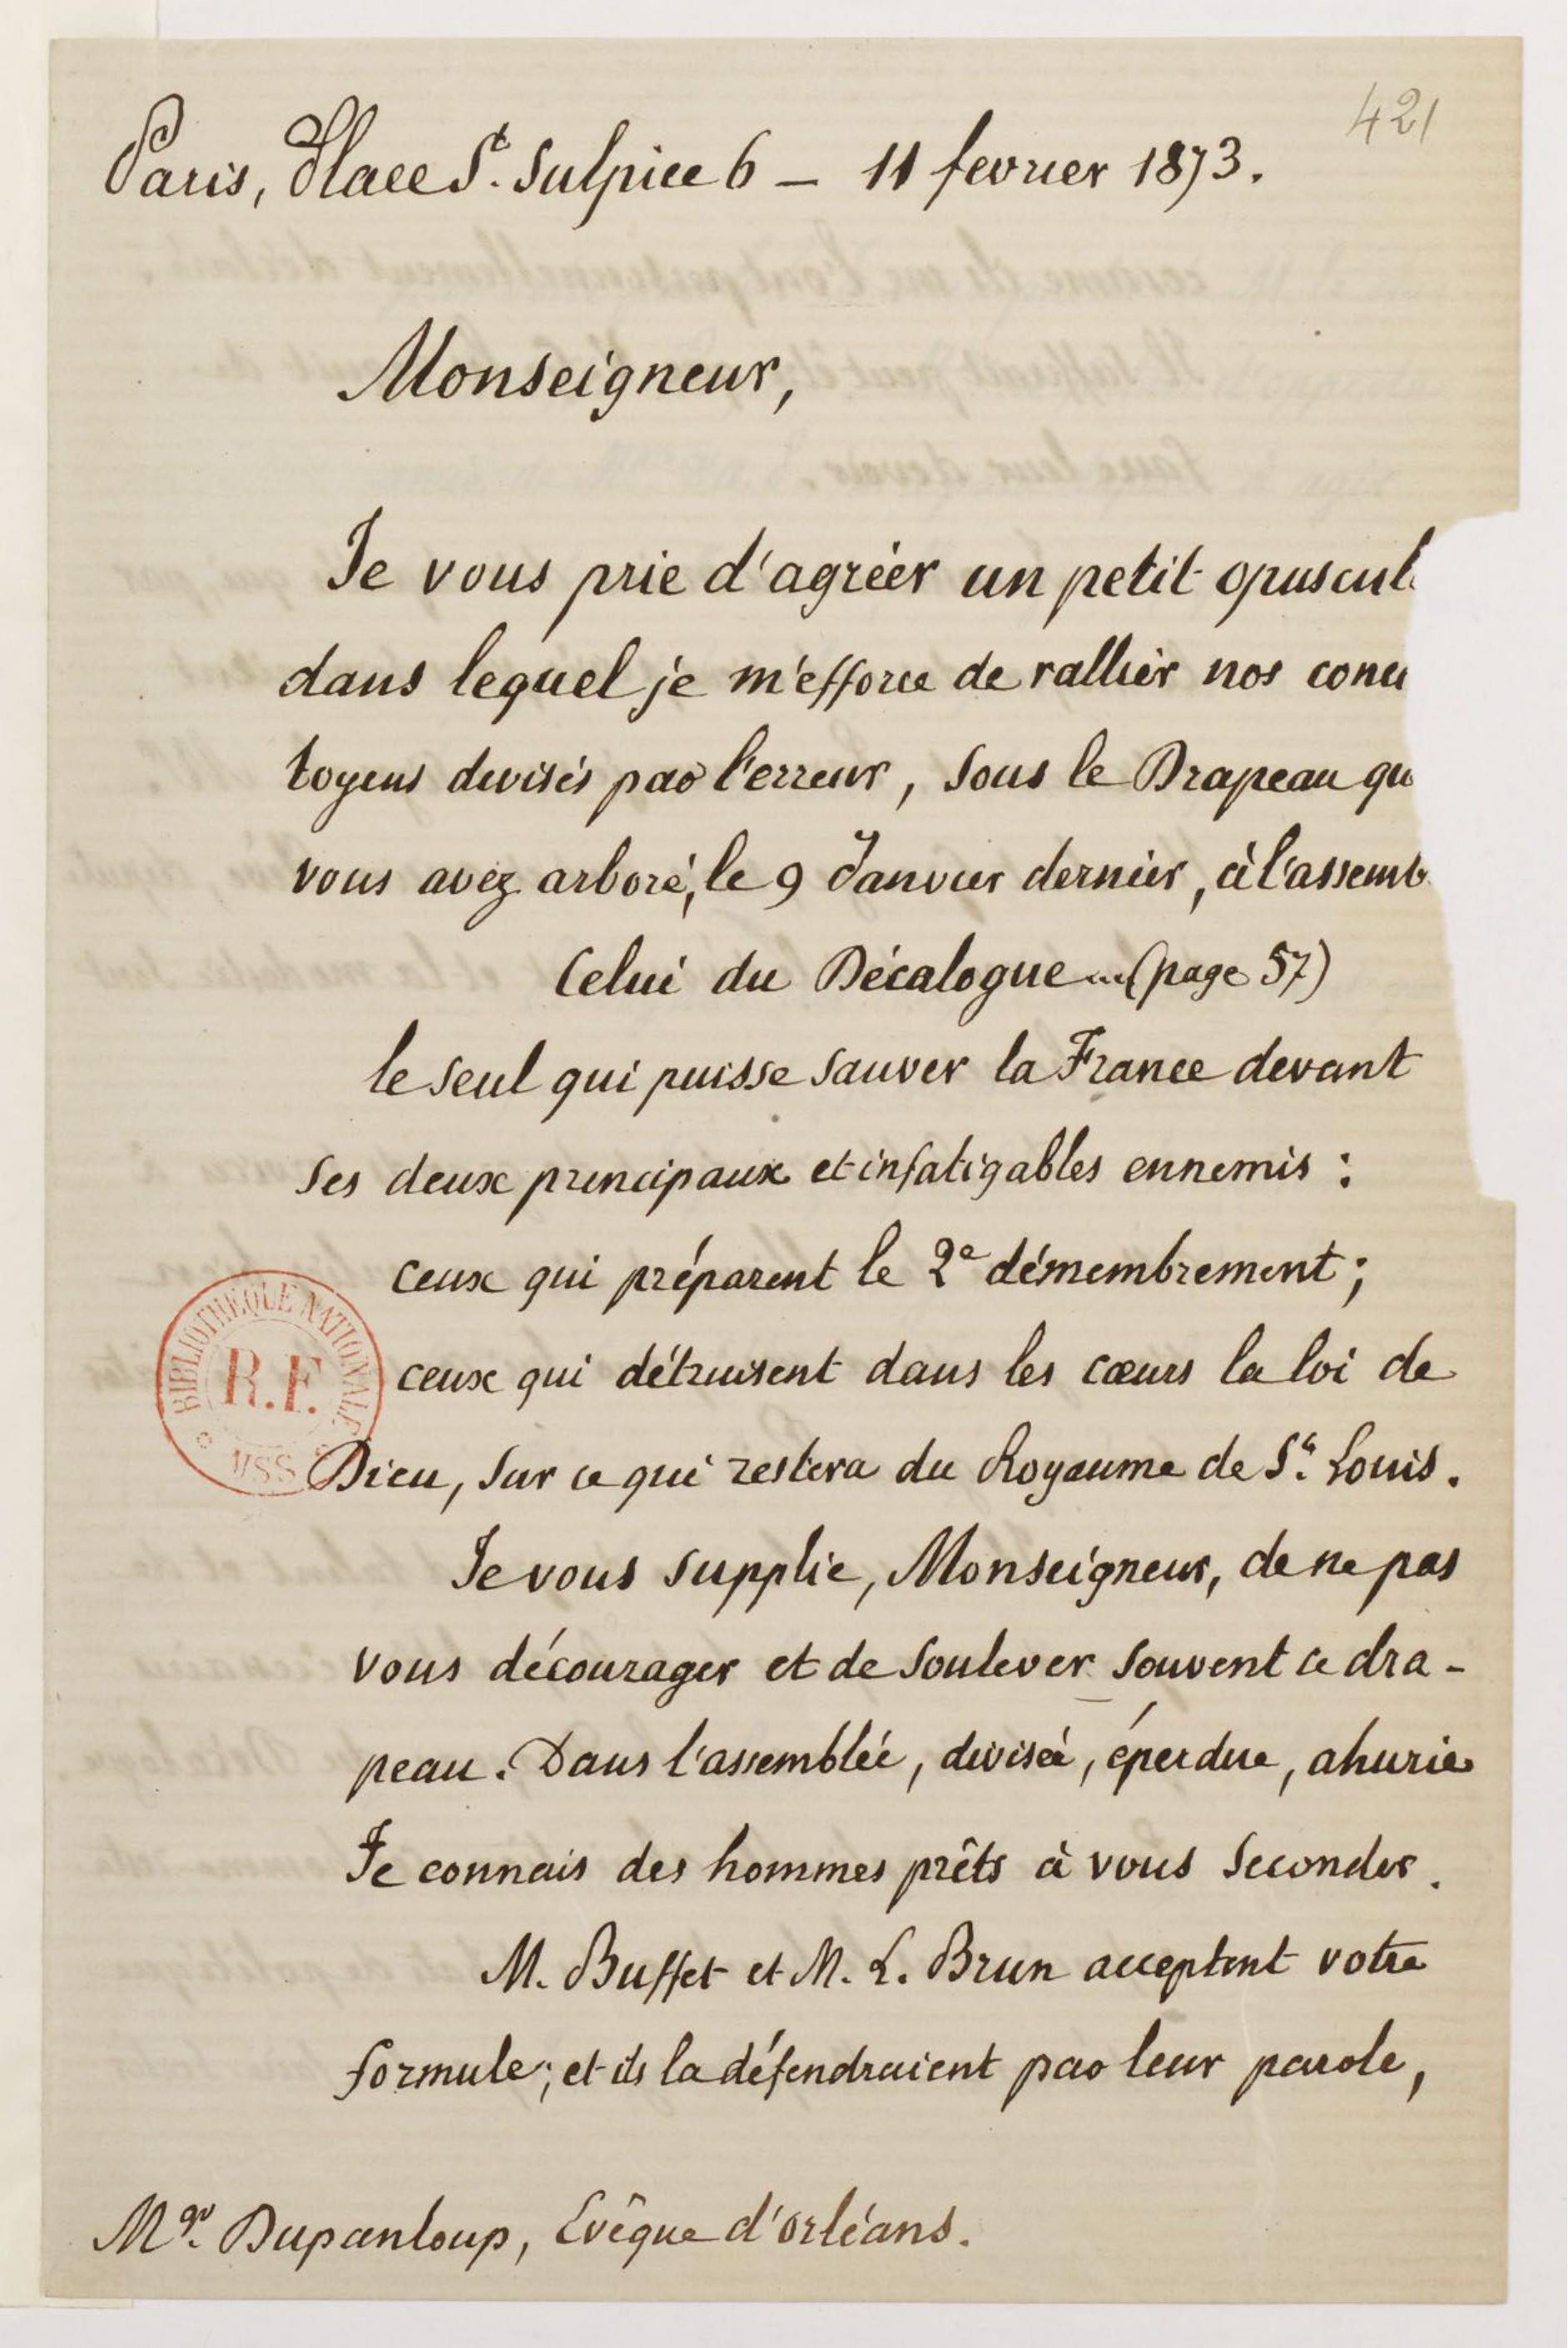 421
Paris, Place St. Sulpice 6 – 11 fevrier 1873.
Monseigneur,
Je vous prie d'agréer un petit opuscul
dans lequel je m'efforce de rallier nos conci
toyens divisés par l'erreur, sous le Drapeau qu
vous avez arboré, le 9 Janvier dernier, à l'assemb
Celui du Décalogue ... (page 57)
le seul qui puisse sauver la France devant
ses deux principaux et infatigables ennemis :
ceux qui préparent le 2e démembrement ;
ceux qui détruisent dans les cœurs la loi de
Dieu, sur ce qui restera du Royaume de St. Louis.
Je vous supplie, Monseigneur, de ne pas
vous décourager et de soulever souvent ce dra-
peau. Dans l'assemblée, divisée, éperdue, ahurie
Je connais des hommes prêts à vous seconder.
M. Buffet et M. L. Brun acceptent votre
formule ; et ils la défendraient par leur parole,
Mgr. Dupanloup, Evêque d'Orléans.
BIBLIOTHEQUE NATIONALE
R.F.
MSS